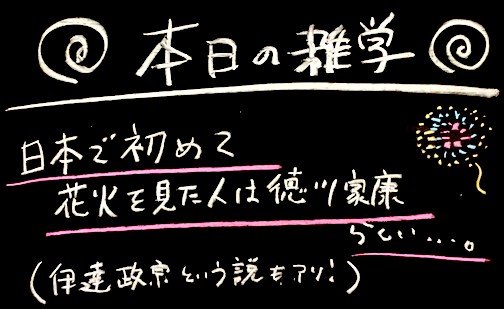 本日の雑学
日本で初めて
花火を見た人は徳川家康
らしい....。
(伊達政宗という説もアリ!)